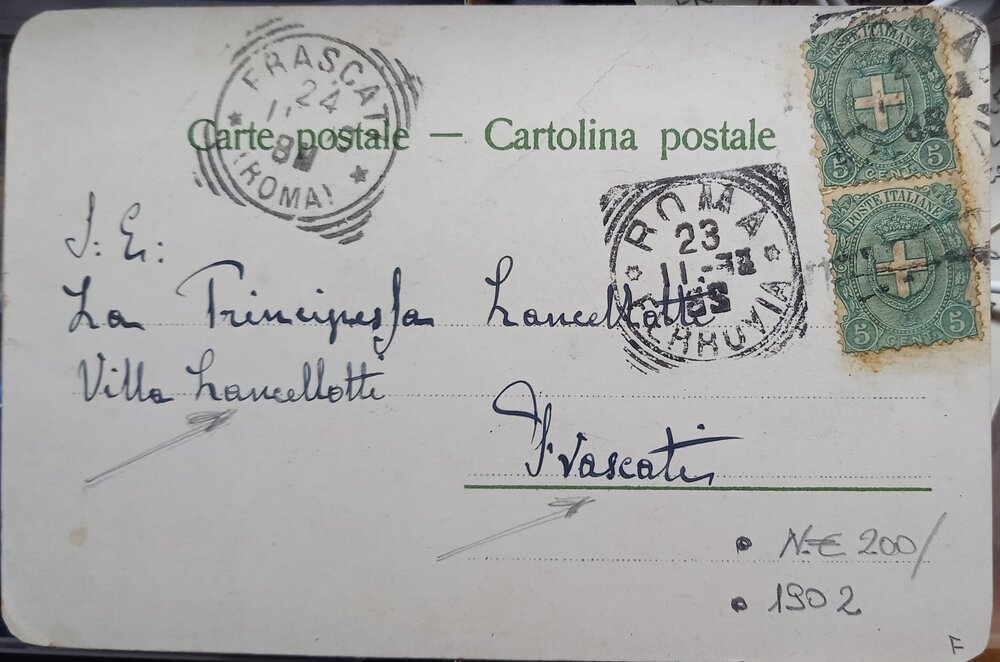 FRASCATI
24
11
(ROMA)
Carte postale — Cartolina postale
POSTE ITALIANE
5 CENT. 5
POSTE ITALIANE
5 CENT. 5
ROMA
23
11
FERROVIA
S. E.:
La Principessa Lancellotti
Villa Lancellotti
Frascati
N. € 200/
1902
F